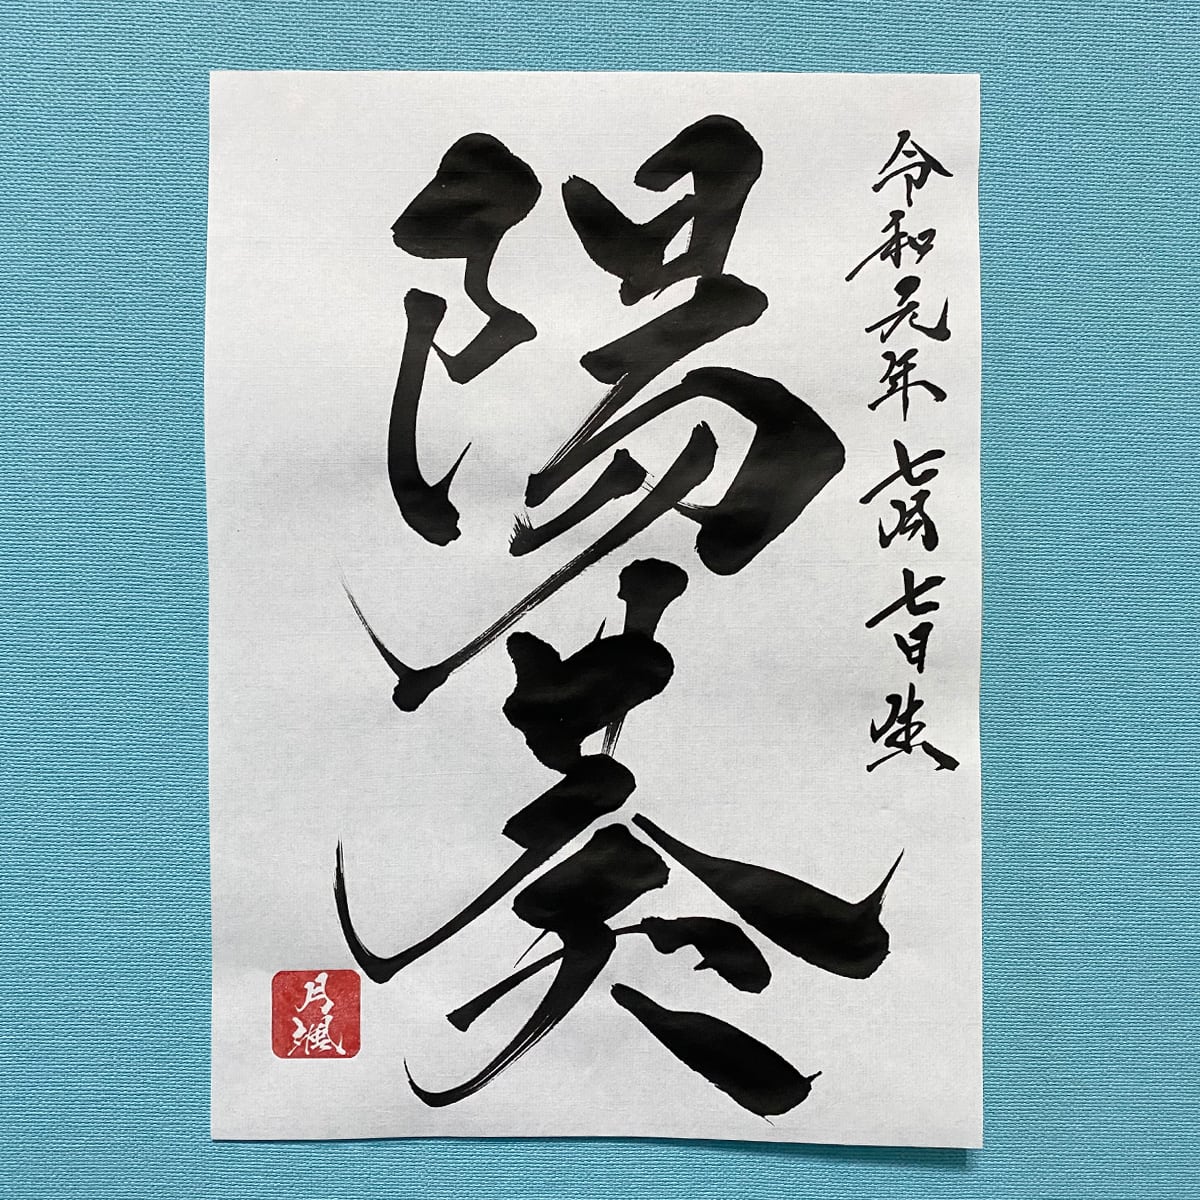 令和元年七月七日生
陽葵
月颯